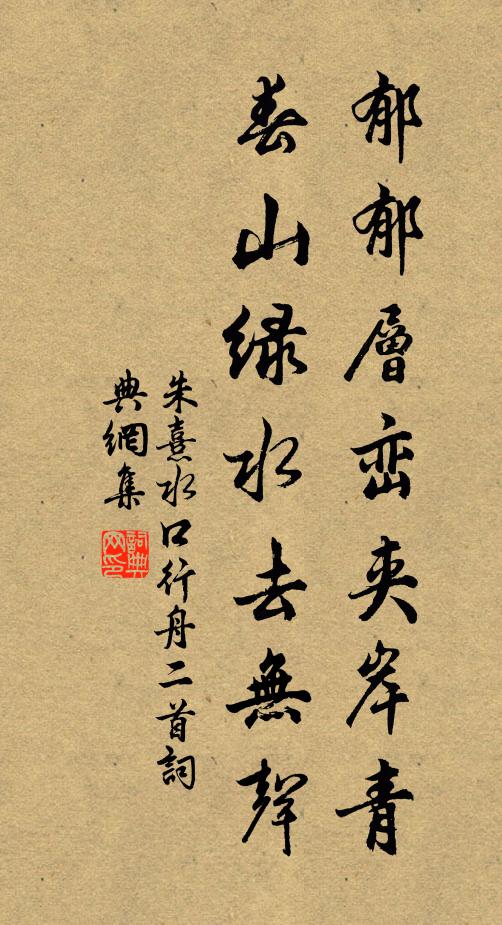 郁郁層峦夾岸青
春山绿水去無聲
朱熹水口行舟二首詞
典網集
詞典
网印